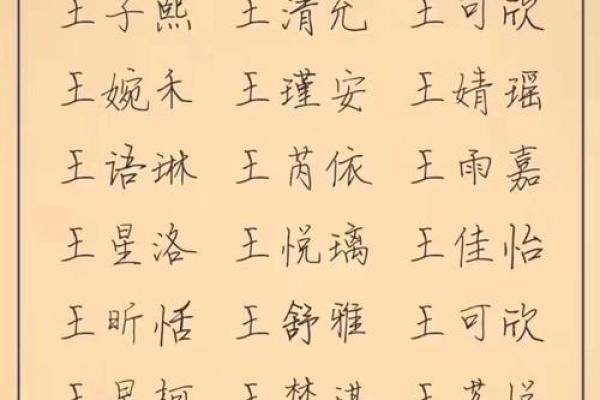 王子熙 王清允 王可欣
王婉禾 王瑾安 王婧瑶
王语琳 王芮依 王雨嘉
王星洛 王悦璃 王佳怡
王昕恬 王舒雅 王可欣
王 王梦淇 王